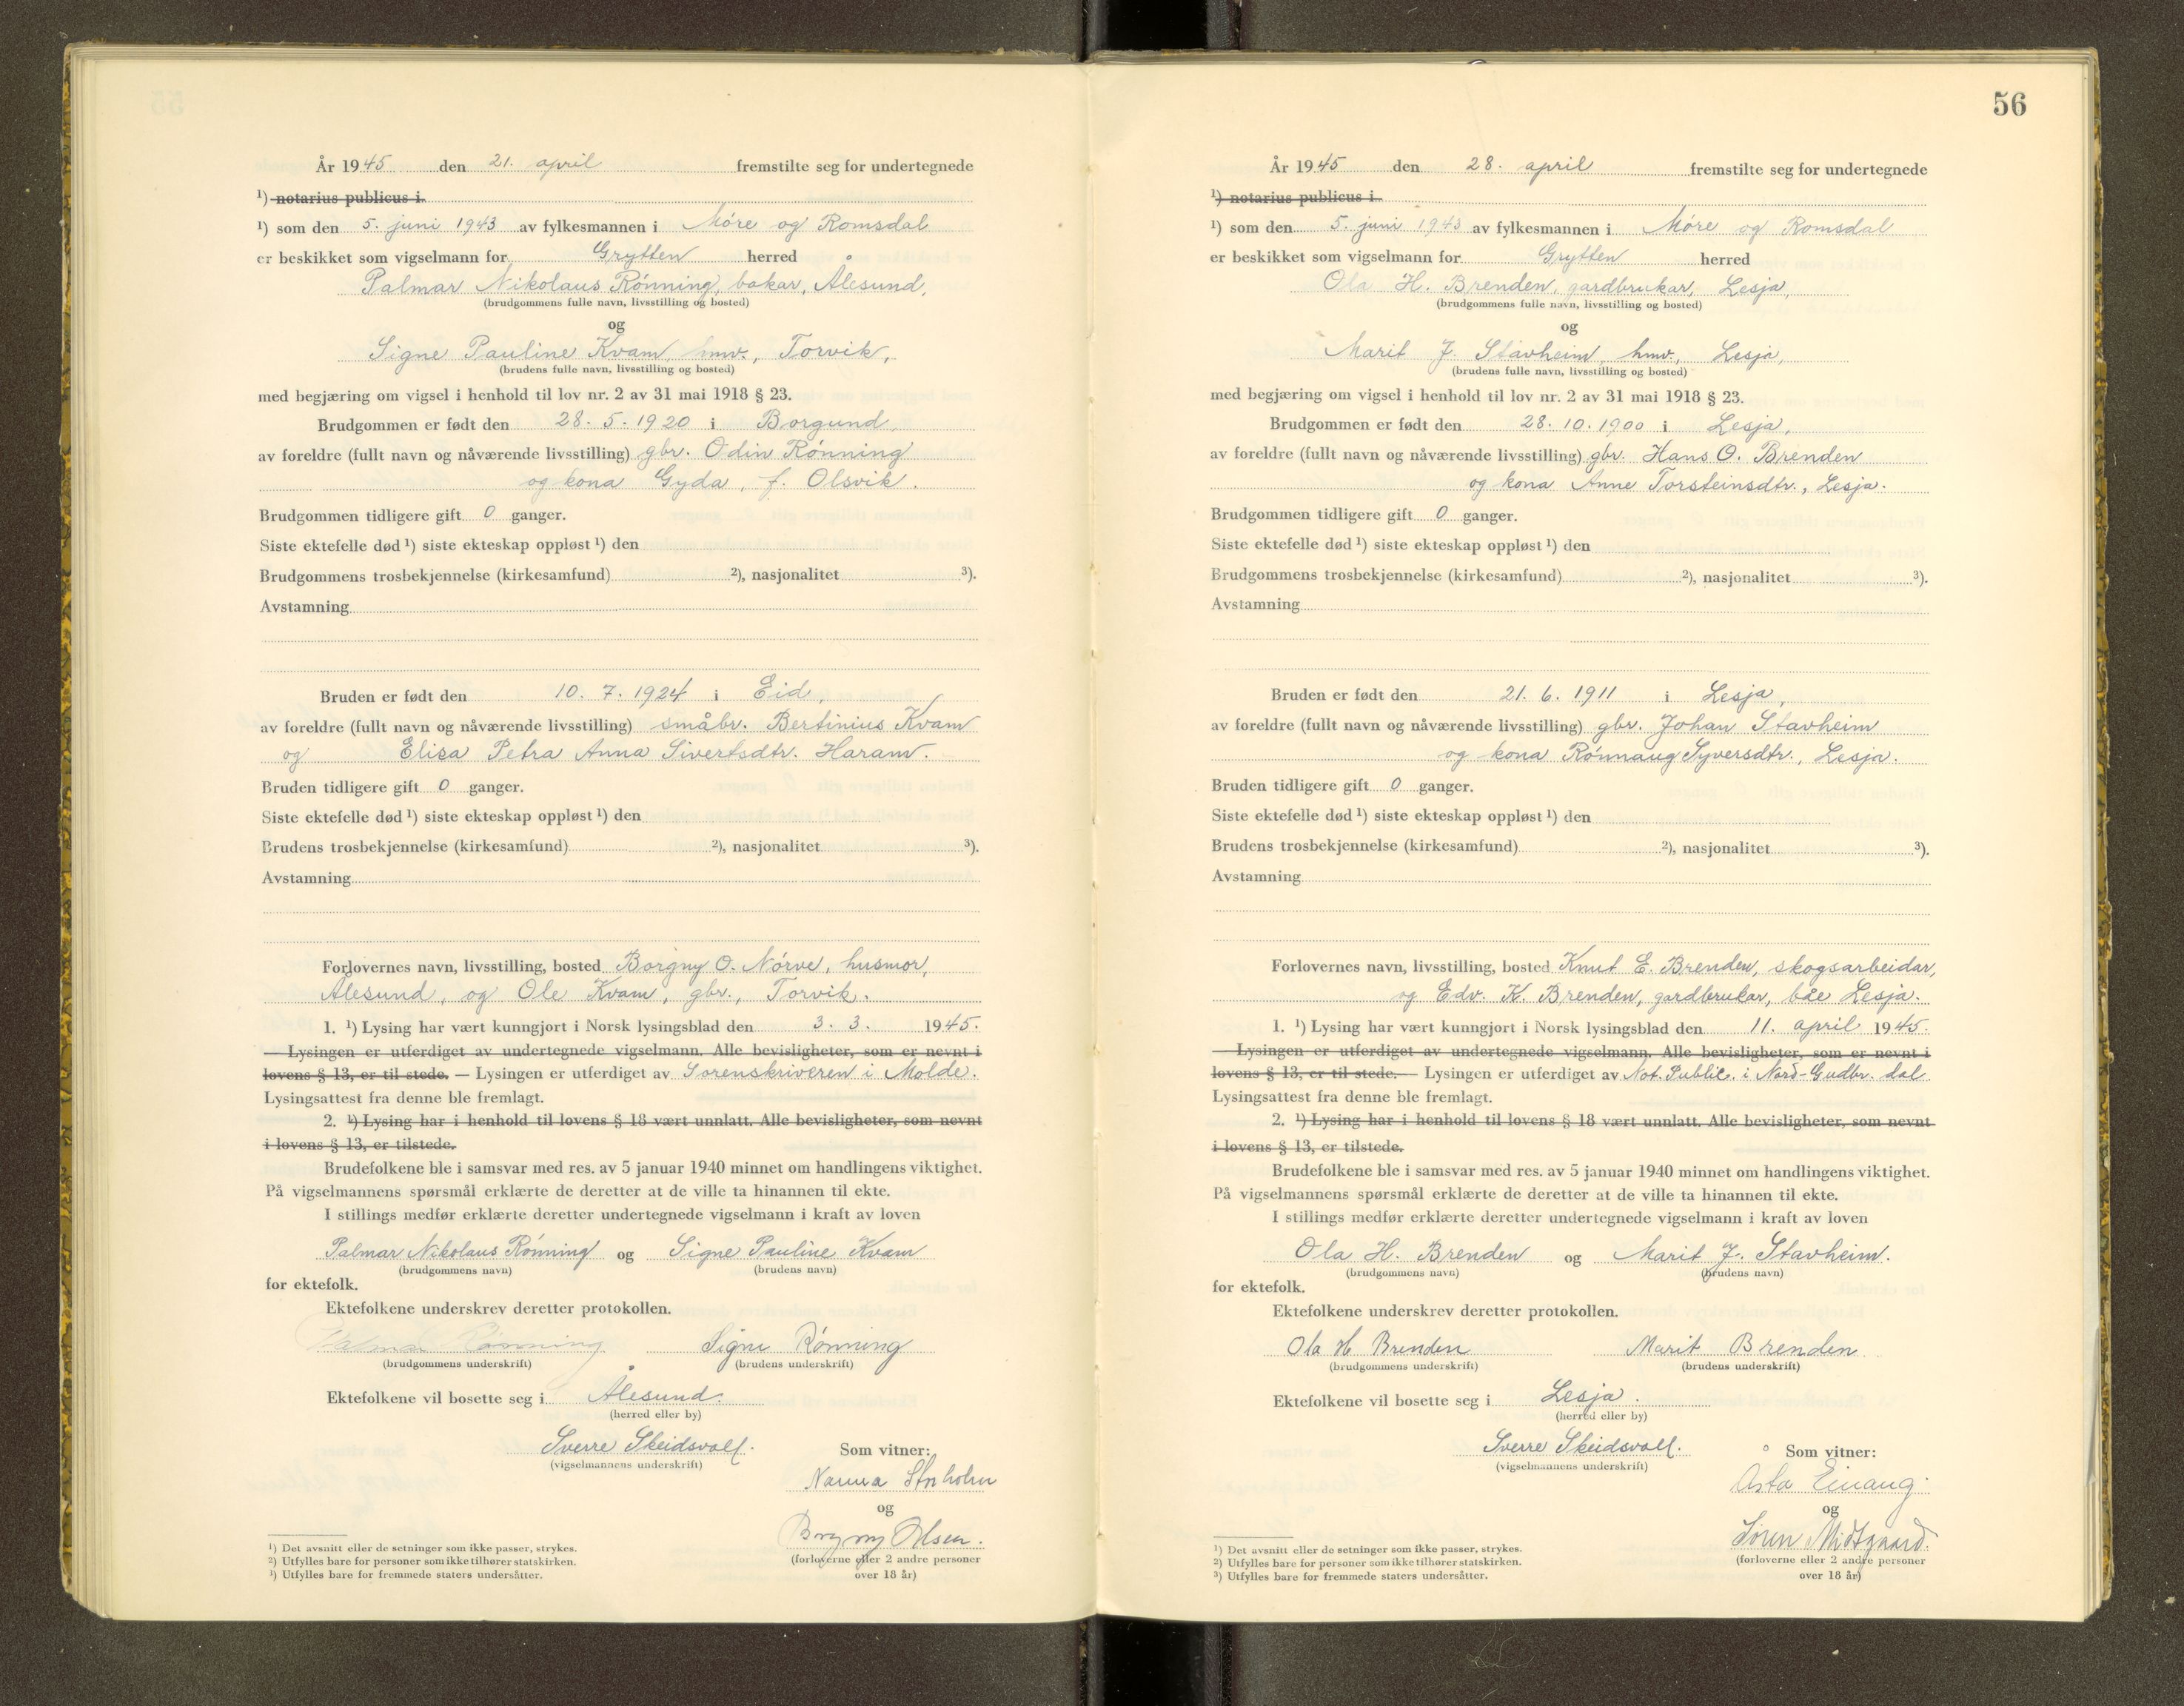 År 1945 den 21. april fremstilte seg for undertegnede
¹) notarius publicus i
¹) som den 5. juni 1943 av fylkesmannen i Møre og Romsdal
er beskikket som vigselmann for Grytten herred
Palmar Nikolaus Rønning, bakar, Ålesund,
(brudgommens fulle navn, livsstilling og bosted)
og
Signe Pauline Kvam, hmv., Torvik,
(brudens fulle navn, livsstilling og bosted)
med begjæring om vigsel i henhold til lov nr. 2 av 31 mai 1918 § 23.
Brudgommen er født den 28. 5. 1920 i Borgund,
av foreldre (fullt navn og nåværende livsstilling) gbr. Odin Rønning
og kona Gyda, f. Olsvik.
Brudgommen tidligere gift 0 ganger.
Siste ektefelle død ¹) siste ekteskap oppløst ¹) den
Brudgommens trosbekjennelse (kirkesamfund) ²), nasjonalitet ³).
Avstamning
Bruden er født den 10. 7. 1924 i Eid,
av foreldre (fullt navn og nåværende livsstilling) småbr. Bertinius Kvam
og Elisa Petra Anna Sivertsdtr. Haram.
Bruden tidligere gift 0 ganger.
Siste ektefelle død ¹) siste ekteskap oppløst ¹) den
Brudens trosbekjennelse (kirkesamfund) ²), nasjonalitet ³).
Avstamning
Forlovernes navn, livsstilling, bosted Borgny O. Nørve, husmor,
Ålesund, og Ole Kvam, gbr., Torvik.
1. ¹) Lysing har vært kunngjort i Norsk lysingsblad den 3. 3. 1945.
— Lysingen er utferdiget av undertegnede vigselmann. Alle bevisligheter, som er nevnt i
lovens § 13, er til stede. — Lysingen er utferdiget av Sorenskriveren i Molde.
Lysingsattest fra denne ble fremlagt.
2. ¹) Lysing har i henhold til lovens § 18 vært unnlatt. Alle bevisligheter, som nevnt
i lovens § 13, er tilstede.
Brudefolkene ble i samsvar med res. av 5 januar 1940 minnet om handlingens viktighet.
På vigselmannens spørsmål erklærte de deretter at de ville ta hinannen til ekte.
I stillings medfør erklærte deretter undertegnede vigselmann i kraft av loven
Palmar Nikolaus Rønning og Signe Pauline Kvam
(brudgommens navn) (brudens navn)
for ektefolk.
Ektefolkene underskrev deretter protokollen.
Palmar Rønning Signe Rønning
(brudgommens underskrift) (brudens underskrift)
Ektefolkene vil bosette seg i Ålesund.
(herred eller by)
Sverre Skeidsvoll. Som vitner:
(vigselmannens underskrift)
Nanna Storholm
og
Borgny Olsen.
(forloverne eller 2 andre personer
over 18 år)
¹) Det avsnitt eller de setninger som ikke passer, strykes.
²) Utfylles bare for personer som ikke tilhører statskirken.
³) Utfylles bare for fremmede staters undersåtter.
56
År 1945 den 28. april fremstilte seg for undertegnede
¹) notarius publicus i
¹) som den 5. juni 1943 av fylkesmannen i Møre og Romsdal
er beskikket som vigselmann for Grytten herred
Ola H. Brenden, gardbrukar, Lesja,
(brudgommens fulle navn, livsstilling og bosted)
og
Marit J. Stavheim, hmv., Lesja,
(brudens fulle navn, livsstilling og bosted)
med begjæring om vigsel i henhold til lov nr. 2 av 31 mai 1918 § 23.
Brudgommen er født den 28. 10. 1900 i Lesja,
av foreldre (fullt navn og nåværende livsstilling) gbr. Hans O. Brenden
og kona Anne Torsteinsdtr., Lesja.
Brudgommen tidligere gift 0 ganger.
Siste ektefelle død ¹) siste ekteskap oppløst ¹) den
Brudgommens trosbekjennelse (kirkesamfund) ²), nasjonalitet ³).
Avstamning
Bruden er født den 21. 6. 1911 i Lesja,
av foreldre (fullt navn og nåværende livsstilling) gbr. Johan Stavheim
og kona Rønnaug Syversdtr., Lesja.
Bruden tidligere gift 0 ganger.
Siste ektefelle død ¹) siste ekteskap oppløst ¹) den
Brudens trosbekjennelse (kirkesamfund) ²), nasjonalitet ³).
Avstamning
Forlovernes navn, livsstilling, bosted Knut E. Brenden, skogsarbeidar,
og Edv. K. Brenden, gardbrukar, båe Lesja.
1. ¹) Lysing har vært kunngjort i Norsk lysingsblad den 11. april 1945.
— Lysingen er utferdiget av undertegnede vigselmann. Alle bevisligheter, som er nevnt i
lovens § 13, er til stede. — Lysingen er utferdiget av Not. Public. i Nord-Gudbr. dal
Lysingsattest fra denne ble fremlagt.
2. ¹) Lysing har i henhold til lovens § 18 vært unnlatt. Alle bevisligheter, som nevnt
i lovens § 13, er tilstede.
Brudefolkene ble i samsvar med res. av 5 januar 1940 minnet om handlingens viktighet.
På vigselmannens spørsmål erklærte de deretter at de ville ta hinannen til ekte.
I stillings medfør erklærte deretter undertegnede vigselmann i kraft av loven
Ola H. Brenden og Marit J. Stavheim.
(brudgommens navn) (brudens navn)
for ektefolk.
Ektefolkene underskrev deretter protokollen.
Ola H Brenden Marit Brenden
(brudgommens underskrift) (brudens underskrift)
Ektefolkene vil bosette seg i Lesja.
(herred eller by)
Sverre Skeidsvoll. Som vitner:
(vigselmannens underskrift)
Asta Einang.
og
Søren Midtgaard.
(forloverne eller 2 andre personer
over 18 år)
¹) Det avsnitt eller de setninger som ikke passer, strykes.
²) Utfylles bare for personer som ikke tilhører statskirken.
³) Utfylles bare for fremmede staters undersåtter.